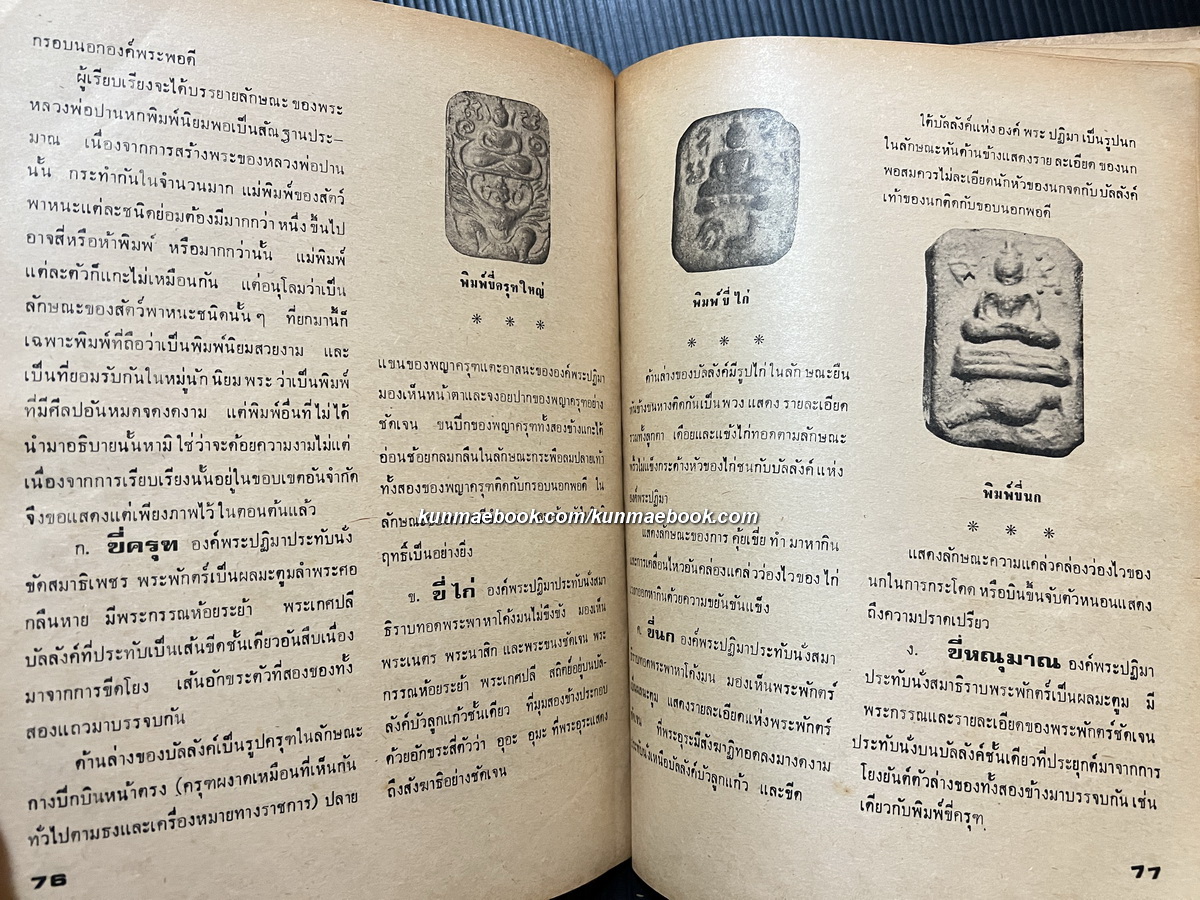 กรอบนอกองค์พระพอดี
ผู้เรียบเรียงจะได้บรรยายลักษณะ ของพระ
หลวงพ่อปานหกพิมพ์นิยมพอเป็นสัณฐานประ–
มาณ เนื่องจากการสร้างพระของหลวงพ่อปาน
นั้น กระทำกันในจำนวนมาก แม่พิมพ์ของสัตว์
พาหนะแต่ละชนิดย่อมต้องมีมากกว่า หนึ่ง ขึ้นไป
อาจสี่หรือห้าพิมพ์ หรือมากกว่านั้น แม่พิมพ์
แต่ละตัวก็แกะไม่เหมือนกัน แต่อนุโลมว่าเป็น
ลักษณะของสัตว์พาหนะชนิดนั้น ๆ ที่ยกมานี้ก็
เฉพาะพิมพ์ที่ถือว่าเป็นพิมพ์นิยมสวยงาม และ
เป็นที่ยอมรับกันในหมู่นัก นิยม พระ ว่าเป็นพิมพ์
ที่มีศิลปอันหมดจดงดงาม แต่พิมพ์อื่นที่ไม่ได้
นำมาอธิบายนั้นหามิ ใช่ว่าจะด้อยความงามไม่แต่
เนื่องจากการเรียบเรียงนั้นอยู่ในขอบเขตอันจำกัด
จึงขอแสดงแต่เพียงภาพไว้ในตอนต้นแล้ว
ก. ขี่ครุฑ องค์พระปฏิมาประทับนั่ง
ขัดสมาธิเพชร พระพักตร์เป็นผลมะตูมลำพระศอ
กลืนหาย มีพระกรรณห้อยระย้า พระเกศปลี
บัลลังค์ที่ประทับเป็นเส้นขีดชั้นเดียวอันสืบเนื่อง
มาจากการขีดโยง เส้นอักขระตัวที่สองของทั้ง
สองแถวมาบรรจบกัน
ด้านล่างของบัลลังค์เป็นรูปครุฑในลักษณะ
กางปีกบินหน้าตรง (ครุฑผงาดเหมือนที่เห็นกัน
ทั่วไปตามธงและเครื่องหมายทางราชการ) ปลาย
76
พิมพ์ขี่ครุฑใหญ่
* * *
แขนของพญาครุฑแตะอาสนะขององค์พระปฏิมา
มองเห็นหน้าตาและจงอยปากของพญาครุฑอย่าง
ชัดเจน ขนปีกของพญาครุฑทั้งสองข้างแกะได้
อ่อนช้อยกลมกลืนในลักษณะกระพือลมปลายเท้า
ทั้งสองของพญาครุฑติดกับกรอบนอกพอดี ใน
ฤทธิ์เป็นอย่างยิ่ง
ข. ขี่ไก่ องค์พระปฏิมาประทับนั่งสมา
ธิราบทอดพระพาหาโค้งมนไม่ขึงขัง มองเห็น
พระเนตร พระนาสิก และพระขนงชัดเจน พระ
กรรณห้อยระย้า พระเกศปลี สถิตย์อยู่บนบัล-
ลังค์บัวลูกแก้วชั้นเดียว ที่มุมสองข้างประกอบ
ด้วยอักขระสี่ตัวว่า อุอะ อุมะ ที่พระอุระแสดง
ถึงสังฆาธิอย่างชัดเจน
kunmaebook.com/kunmaebook.com
พิมพ์ขี่ไก่
* * *
ด้านล่างของบัลลังค์มีรูปไก่ ในลักษณะยืน
ขนหางติดกันเป็นพวง แสดง รายละเอียด
เดือยและแข้งไก่ทอดตามลักษณะ
หัวของไก่ชนกับบัลลังค์ แห่ง
องค์พระปฏิมา
แสดงลักษณะของการ คุ้ยเขี่ย ทำ มาหากิน
และการเคลื่อนไหวอันคล่องแคล่วว่องไวของ ไก่
หากินด้วยความขยันขันแข็ง
ค. ขี่นก องค์พระปฏิมาประทับนั่งสมา
ธิราบทอดพระพาหาโค้งมน มองเห็นพระพักตร์
แสดงรายละเอียดแห่งพระพักตร์
ที่พระอุระมีสังฆาฏิทอดลงมางดงาม
ประทับนั่งเหนือบัลลังค์บัวลูกแก้ว และขีด
ใต้บัลลังค์แห่ง องค์ พระ ปฏิมา เป็นรูปนก
ในลักษณะหันด้านข้างแสดงราย ละเอียด ของนก
พอสมควรไม่ละเอียดนักหัวของนกจดกับบัลลังค์
เท้าของนกติดกับขอบนอกพอดี
พิมพ์ขี่นก
* * *
แสดงลักษณะความแคล่วคล่องว่องไวของ
นกในการกระโดด หรือบินขึ้นจับตัวหนอนแสดง
ถึงความปราดเปรียว
ง. ขี่หณุมาณ องค์พระปฏิมา
ประทับนั่งสมาธิราบพระพักตร์เป็นผลมะตูม มี
พระกรรณและรายละเอียดของพระพักตร์ชัดเจน
ประทับนั่งบนบัลลังค์ชั้นเดียวที่ประยุกต์มาจากการ
โยงยันต์ตัวล่างของทั้งสองข้างมาบรรจบกัน เช่น
เดียวกับพิมพ์ขี่ครุฑ
77